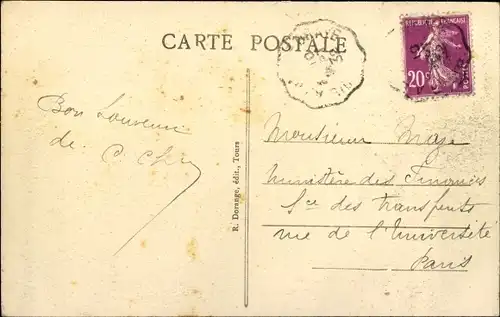 CARTE POSTALE
REPUBLIQUE FRANÇAISE
20c
POSTES
Bon Souvenir
de
R. Dorange, édit., Tours
Monsieur
Ministère des Finances
Sce des Transferts
rue de l'Université
Paris